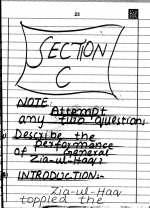 23
SECTION
C
NOTE:
Attempt
any two questions.
Describe the
performance
of General
Zia-ul-Haq?
INTRODUCTION:-
Zia-ul-Haq
toppled the